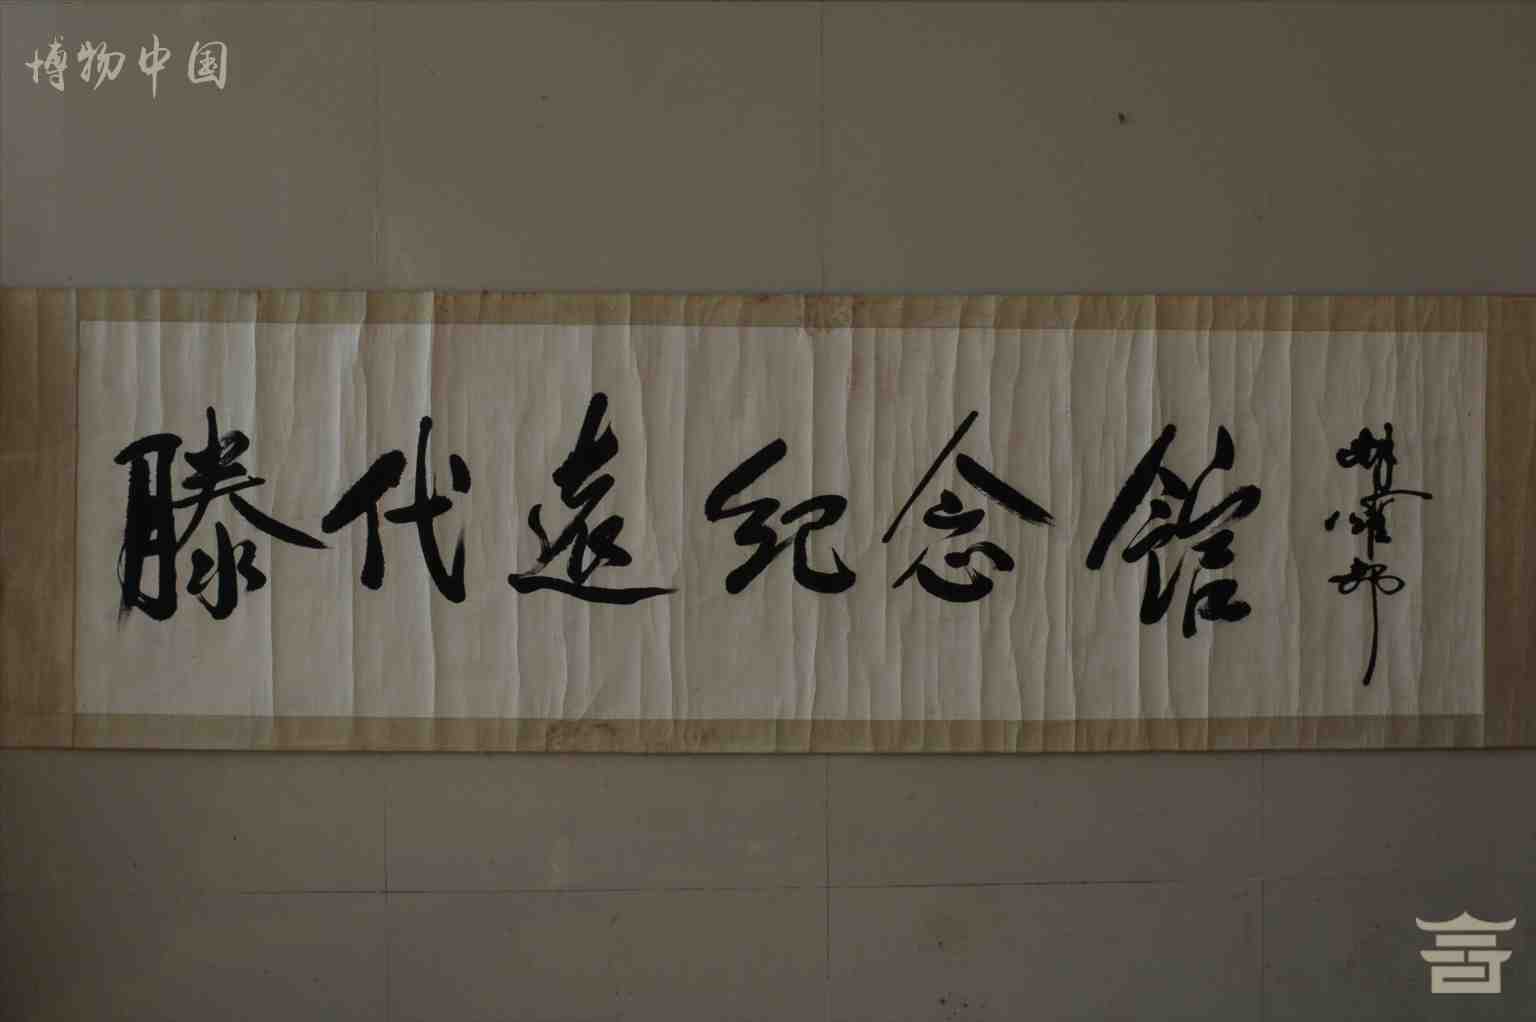 博物中国
滕代遠紀念館
胡耀邦